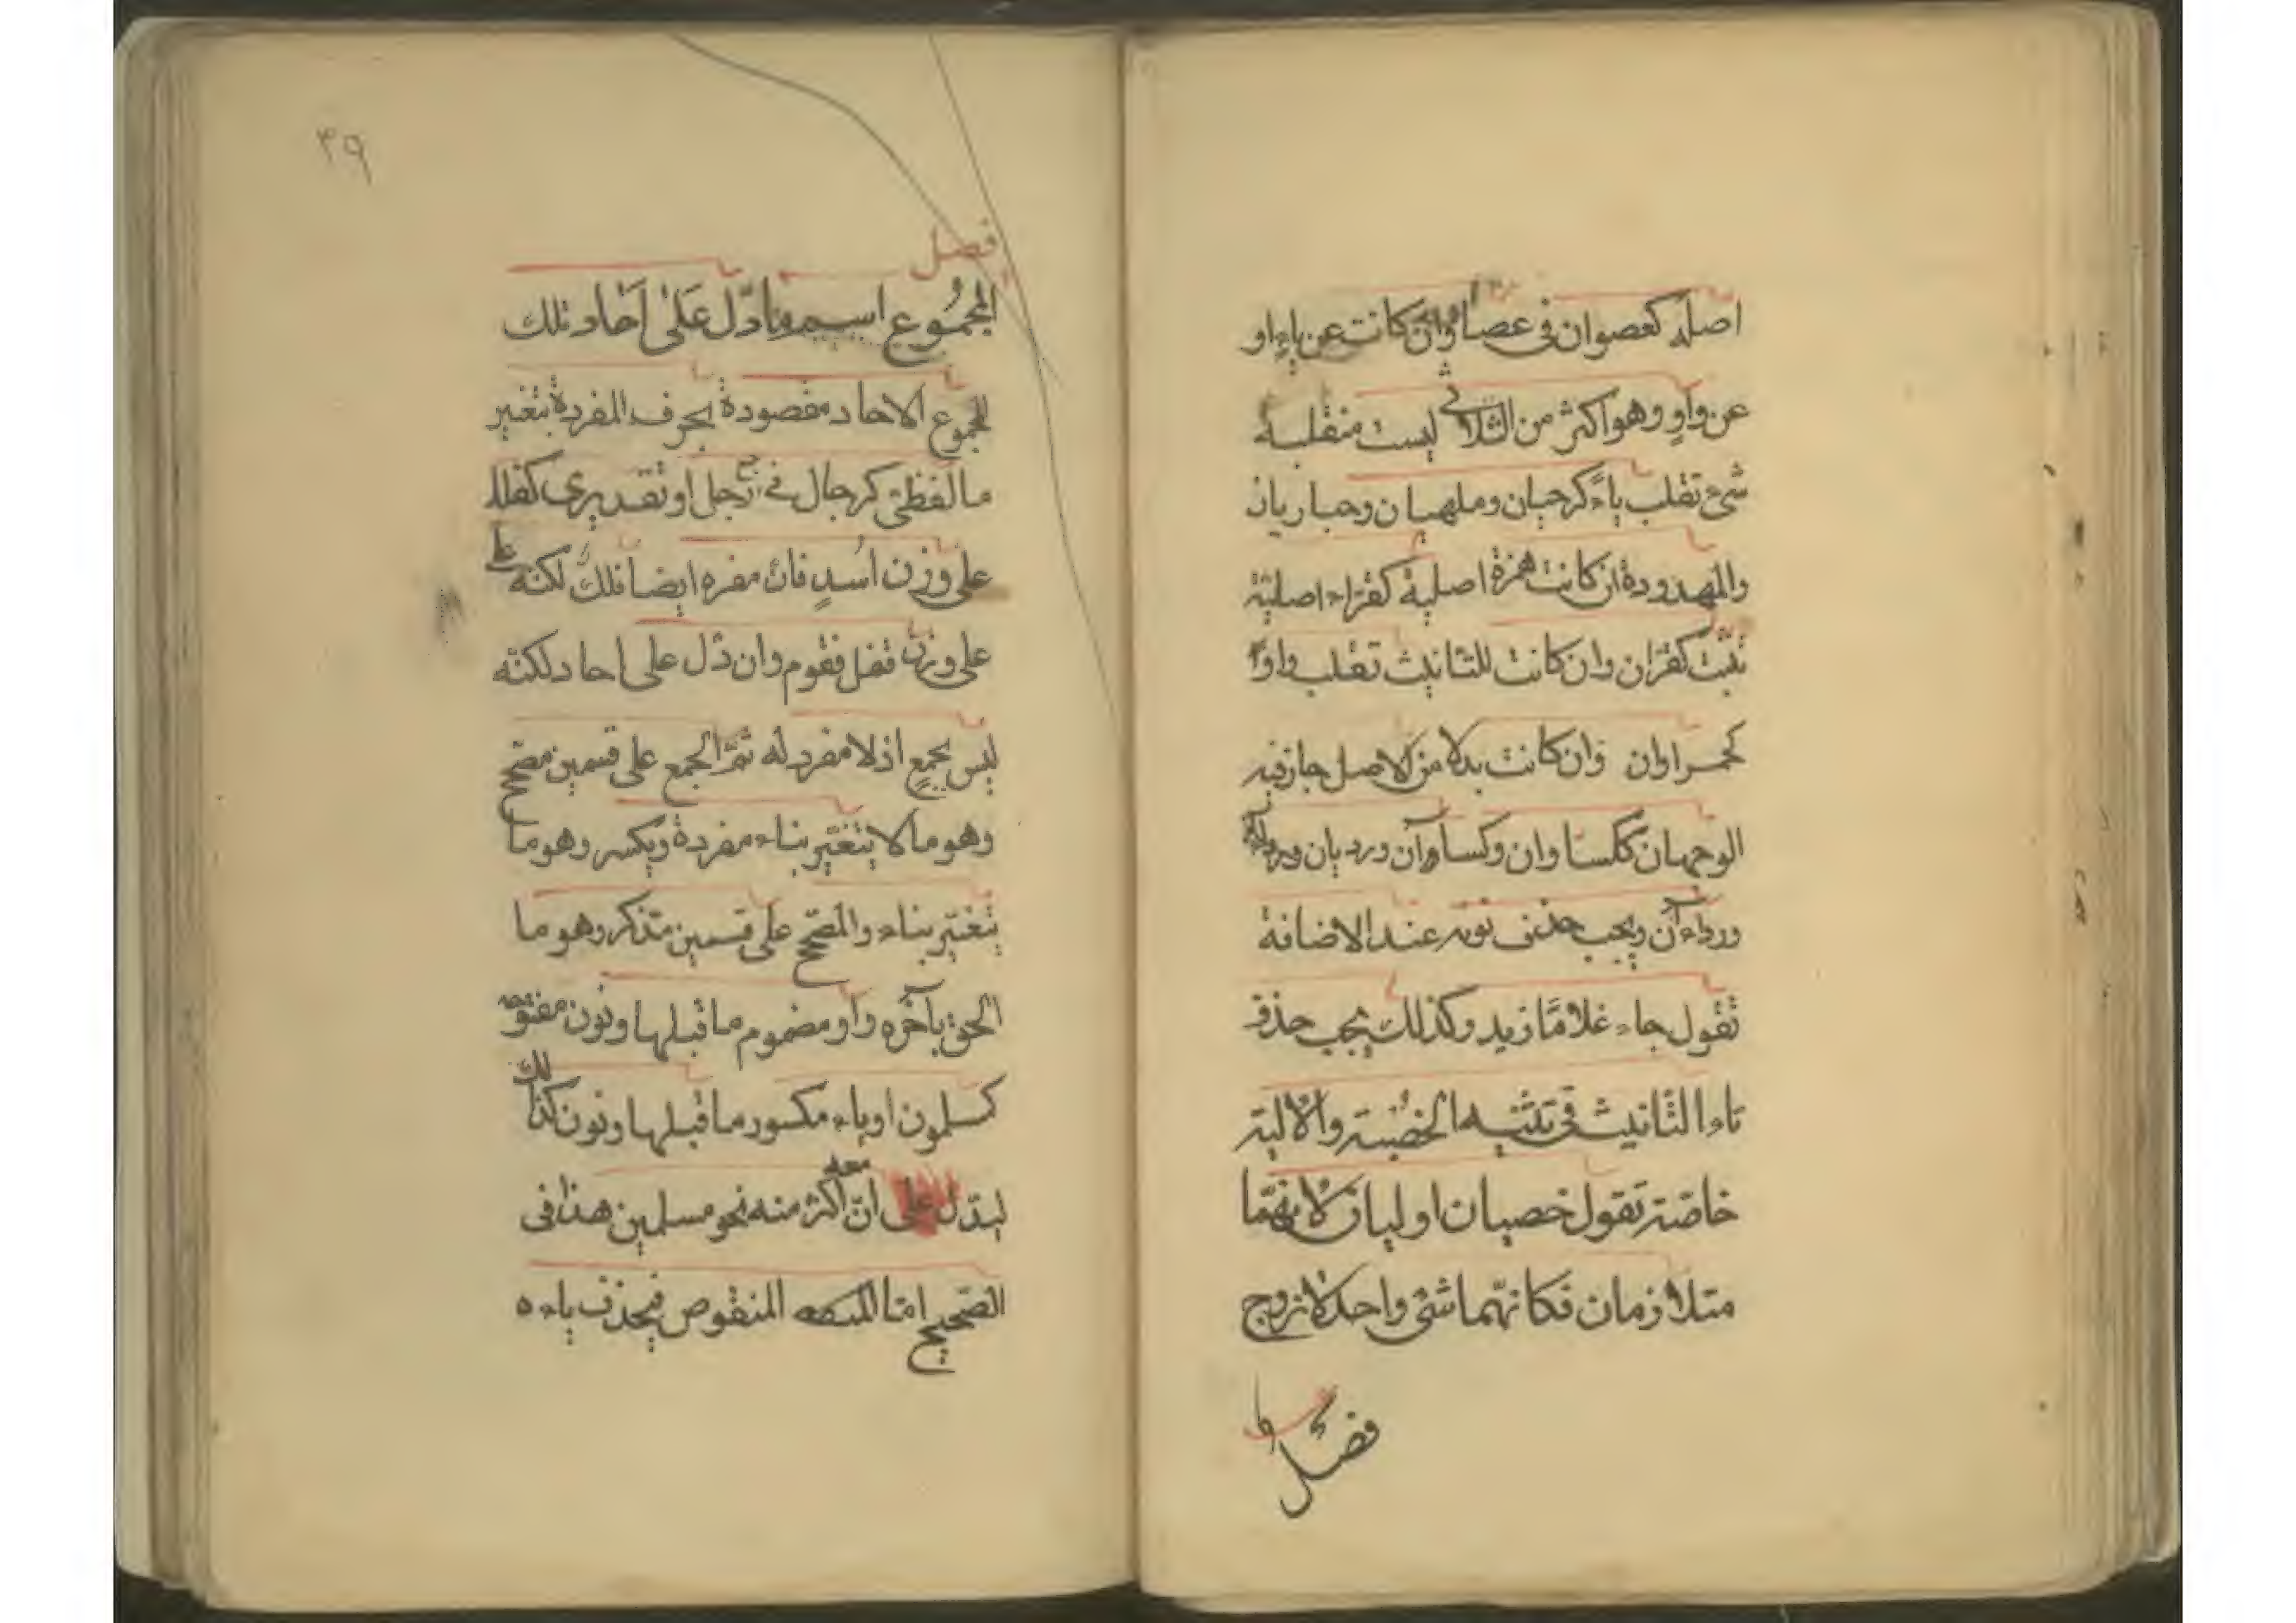 اصله كعصوان فى عصا وان كانت عن ياء او
عن واو وهو اكثر من الثلاثى ليست منقلبة
شىء تقلب ياء كرحيان وملهيان وحباريان
والممدودة ان كانت همزة اصلية كقراء اصلية
تثبت كقرّان وان كانت للتانيث تقلب واوا
كحمراوان وان كانت بدلا من الاصل جاز فيه
الوجهان ككساوان وكساآن ورديان
ورداءآن ويجب حذف نونه عند الاضافة
تقول جاء غلاما زيد وكذلك يجب حذف
تاء التانيث فى تثنيه الخصية والالية
خاصّة تقول خصيان او ليان لانهما
متلازمان فكانّهما شئ واحد لا زوج
فصل
٣٩
فصل
المجموع اسم ما دلّ على احاد تلك
المجموع الاحاد مقصودة بحرف المفردة بتغير
ما لفظى كرجال فى رجل او تقديرى كفلك
على وزن اُسدٍ فان مفره ايضا فلك لكنه
على وزن قفل فقوم وان دل على احاد لكنّه
ليس بجمع اذ لا مفرد له ثمّ الجمع على قسمين مصّحح
وهو ما لا يتغيّر بناء مفردة ويكسر وهو ما
يتغيّر بناء والمصّحح على قسمين مذكر وهو ما
الحق بآخره واو مضموم ما قبلها ونون مفتوحه
كمسلمون او ياء مكسور ما قبلها ونون كذلك
ليدّل على انّ معه اكثر منه نحو مسلمين هذا فى
الصّحيح امّا المنقوص فيحذف ياءه